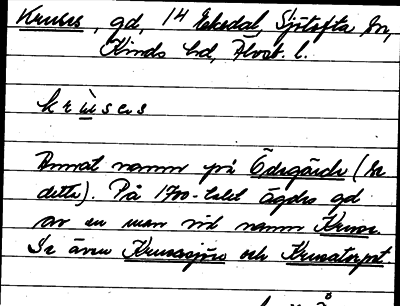 Kruses, gd, 14 Ekedal, Sjötofta sn,
Kinds hd, Älvsb. l.
krùses
Annat namn på Ödegärde (se
detta). På 1700-talet ägdes gd
av en man vid namn Kruse.
Se även Krusasjön och Krusatorpet